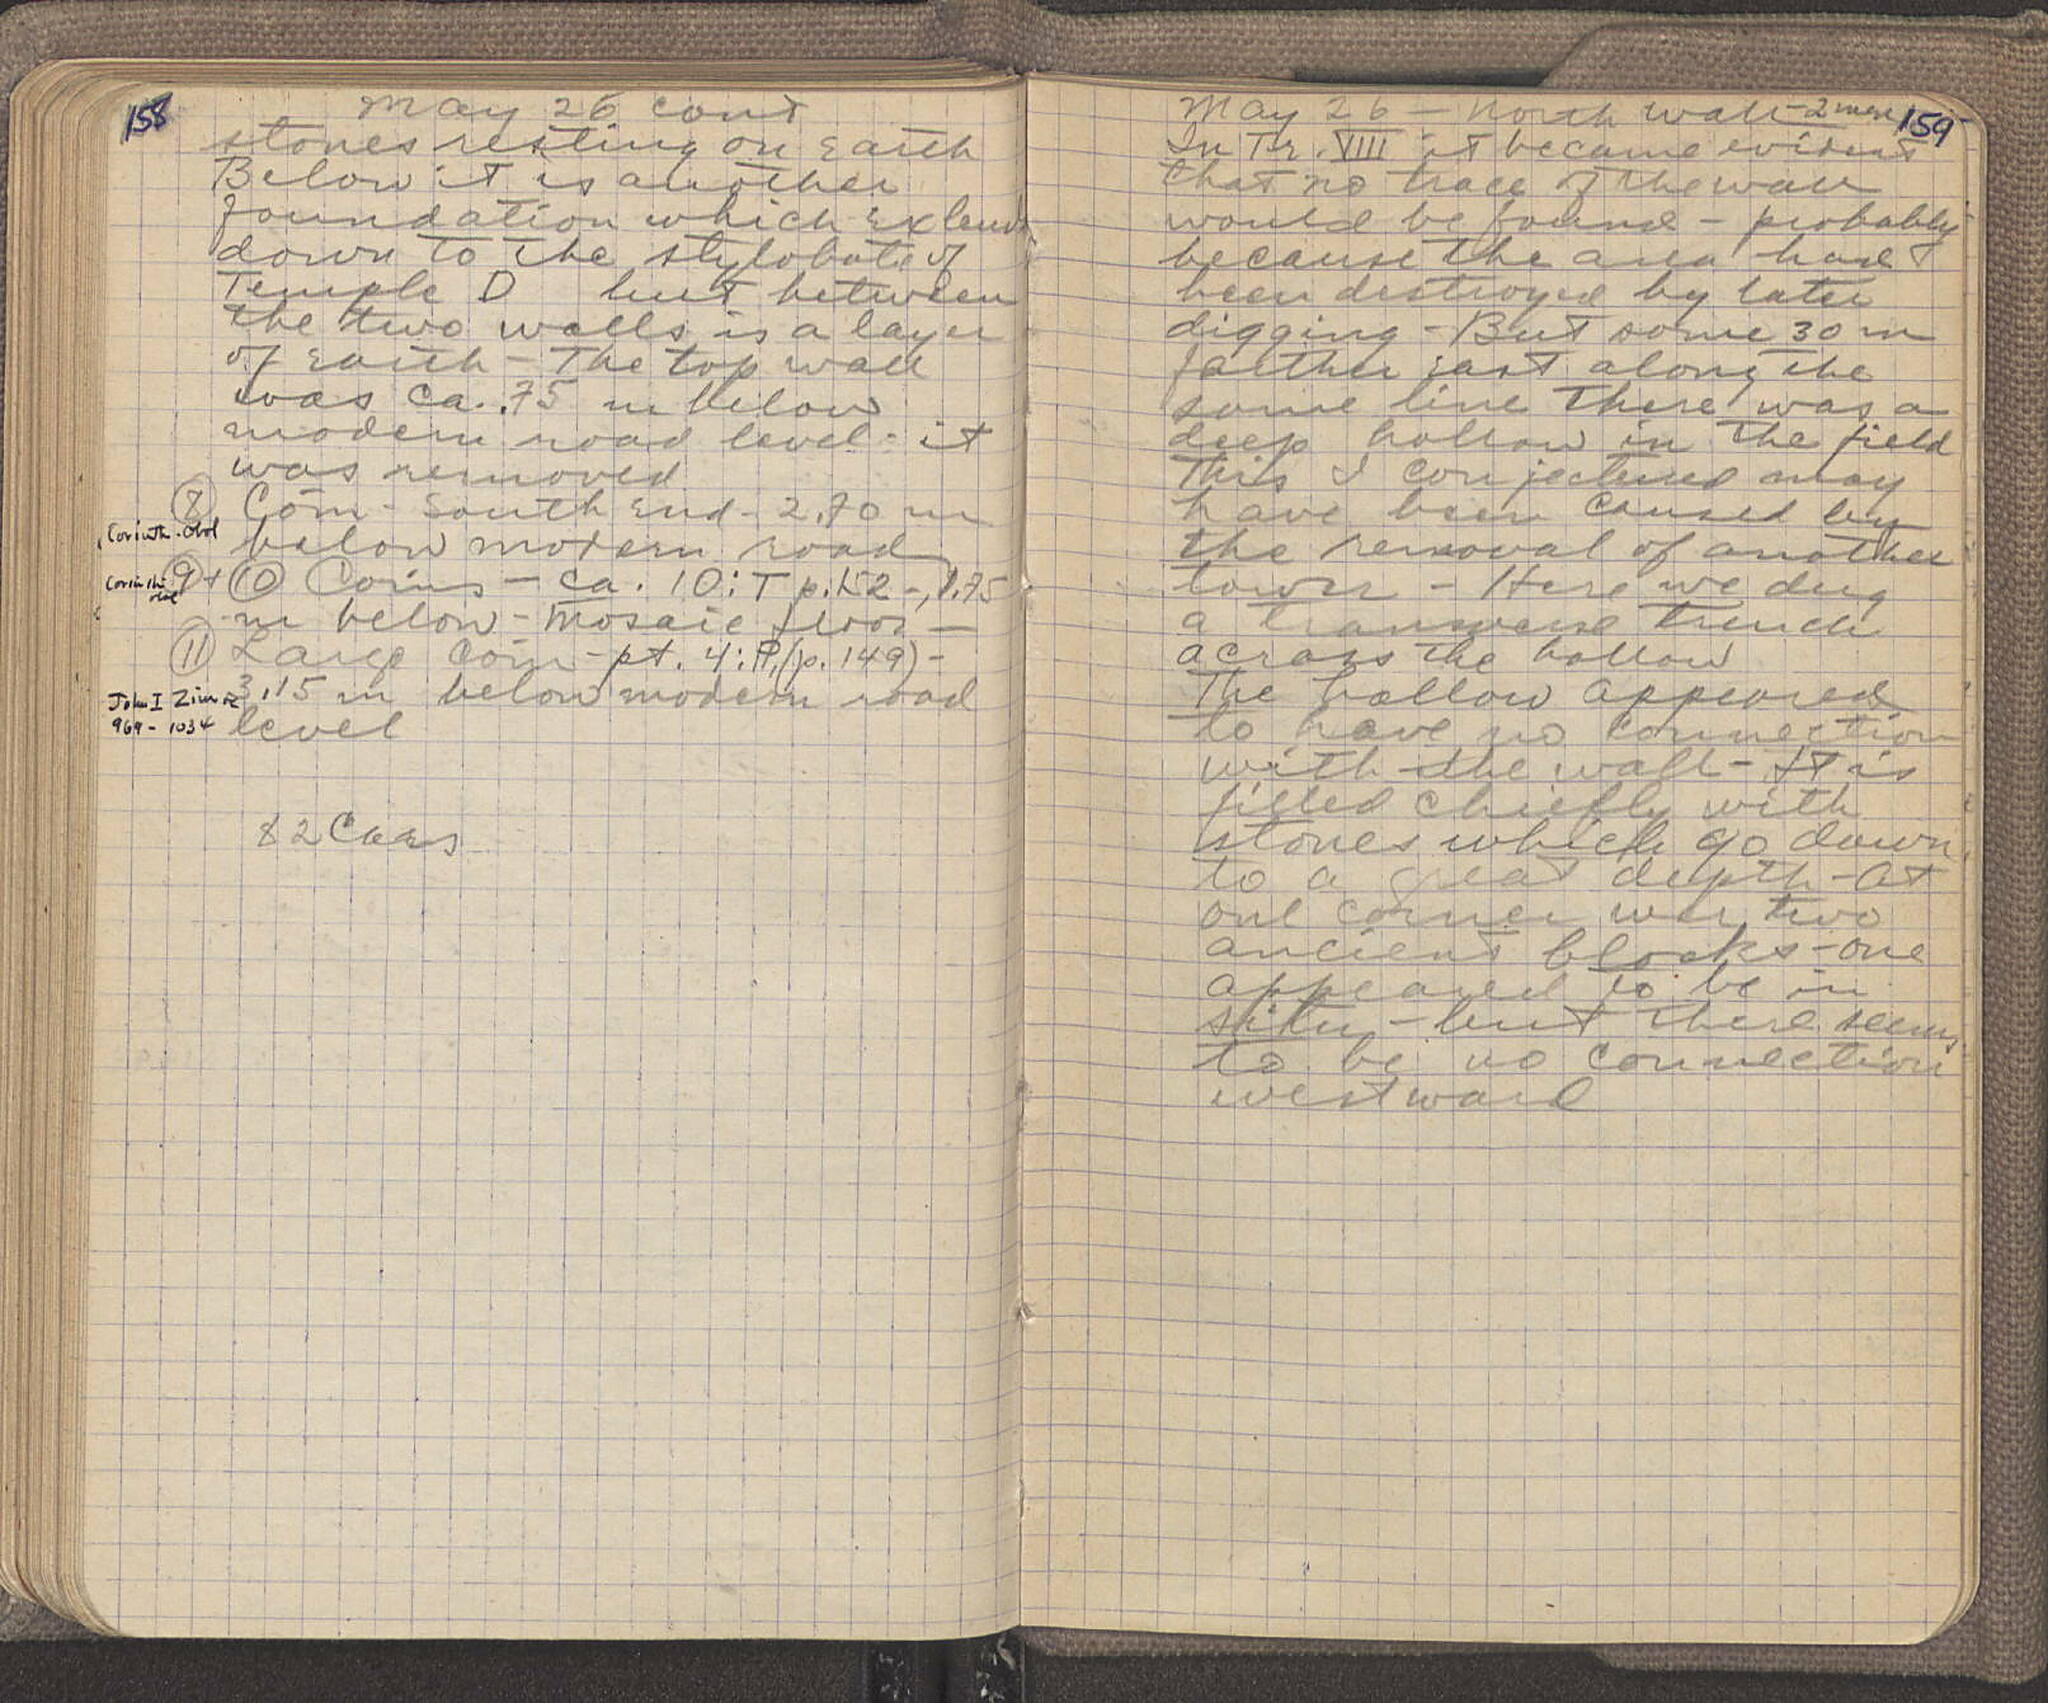 158
May 26 cont
stones resting on earth
Below it is another
foundation which extends
down to the stylobate of
Temple D but between
the two walls is a layer
of earth - The top wall
was ca. .75 m below
modern road level - it
was removed
⑧ Coin - South End - 2.70 m
Corinth. obol
below modern road
⑨ + ⑩ Coins - ca. 10:T p. 152 -, 1.75
Corinthi obol
m below - Mosaic floor -
⑪ Large Coin - pt. 4:P, (p. 149) -
3.15 m below modern road
John I Zim
969 - 1034
level
82 Cars
159
May 26 - North Wall - 2 men
In Tr. VIII it became evident
that no trace of the wall
would be found - probably
because the area had
been destroyed by later
digging - But some 30 m
farther east along the
same line there was a
deep hollow in the field
This I conjectured may
have been caused by
the removal of another
tower - Here we dug
a transverse trench
across the hollow
The hollow appeared
to have no connection
with the wall - It is
filled chiefly with
stones which go down
to a great depth - At
one corner were two
ancient blocks - one
appeared to be in
situ - but there seems
to be no connection
westward